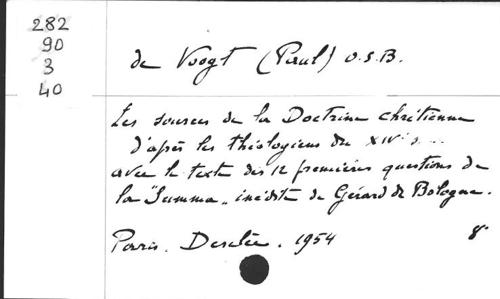 282
90
3
40
de Voogt (Paul) O.S.B.
Les sources de la Doctrine chrétienne
d'après les théologiens du XIVe s...
avec le texte des 12 premières questions de
la "Summa" inédite de Gérard de Bologne.
Paris. Desclée. 1954 8°